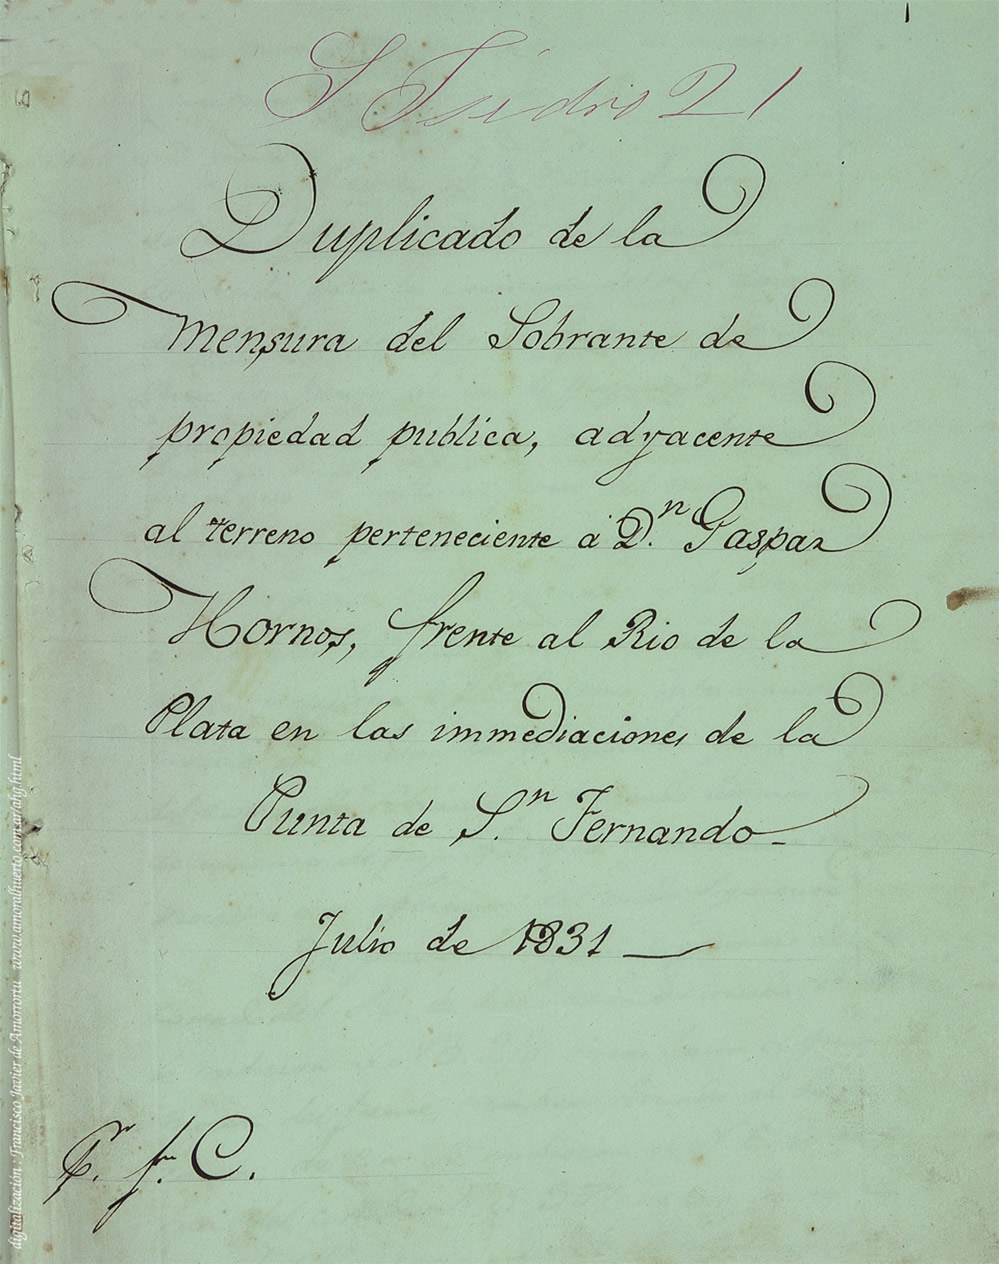 S Isidro 21
Duplicado de la
mensura del Sobrante de
propiedad publica, adyacente
al terreno perteneciente a D.n Gaspar
Hornos, frente al Rio de la
Plata en las immediaciones de la
Punta de S.n Fernando_
Julio de 1831_
C.
digitalización : Francisco Javier de Amorrortu www.amoralhuerto.com.ar/ahg.html